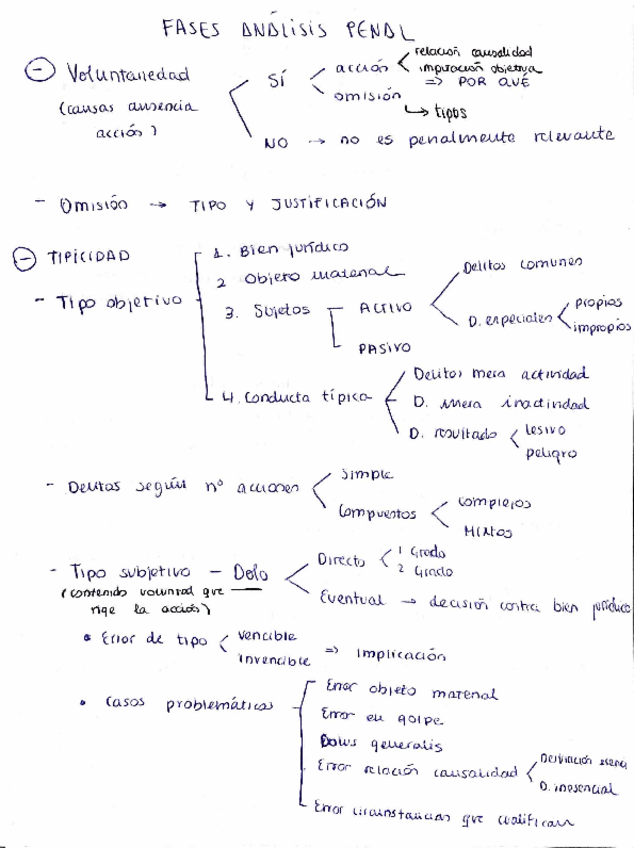 FASES ANÁLISIS PENAL
Voluntariedad
(causas ausencia
acción)
SÍ
acción
relación causalidad
imputación objetiva
=> POR QUÉ
omisión
tipos
NO → no es penalmente relevante
- Omisión → TIPO Y JUSTIFICACIÓN
TIPICIDAD
- Tipo objetivo
1. Bien jurídico
2 Objeto material
3. Sujetos
ACTIVO
Delitos comunes
D. especiales
propios
impropios
PASIVO
4. Conducta típica
Delitos mera actividad
D. mera inactividad
D. resultado
lesivo
peligro
- Delitos según nº acciones
Simple
Compuestos
Complejos
Mixtos
- Tipo subjetivo - Dolo
(contenido voluntad que
rige la acción)
Directo
1 Grado
2 Grado
Eventual → decisión contra bien jurídico
• Error de tipo
vencible
invencible
=> implicación
• Casos problemáticos
Error objeto material
Error en golpe
Dolus generalis
Error relación causalidad
Desviación esenci
D. inesencial
Error circunstancias que cualifican